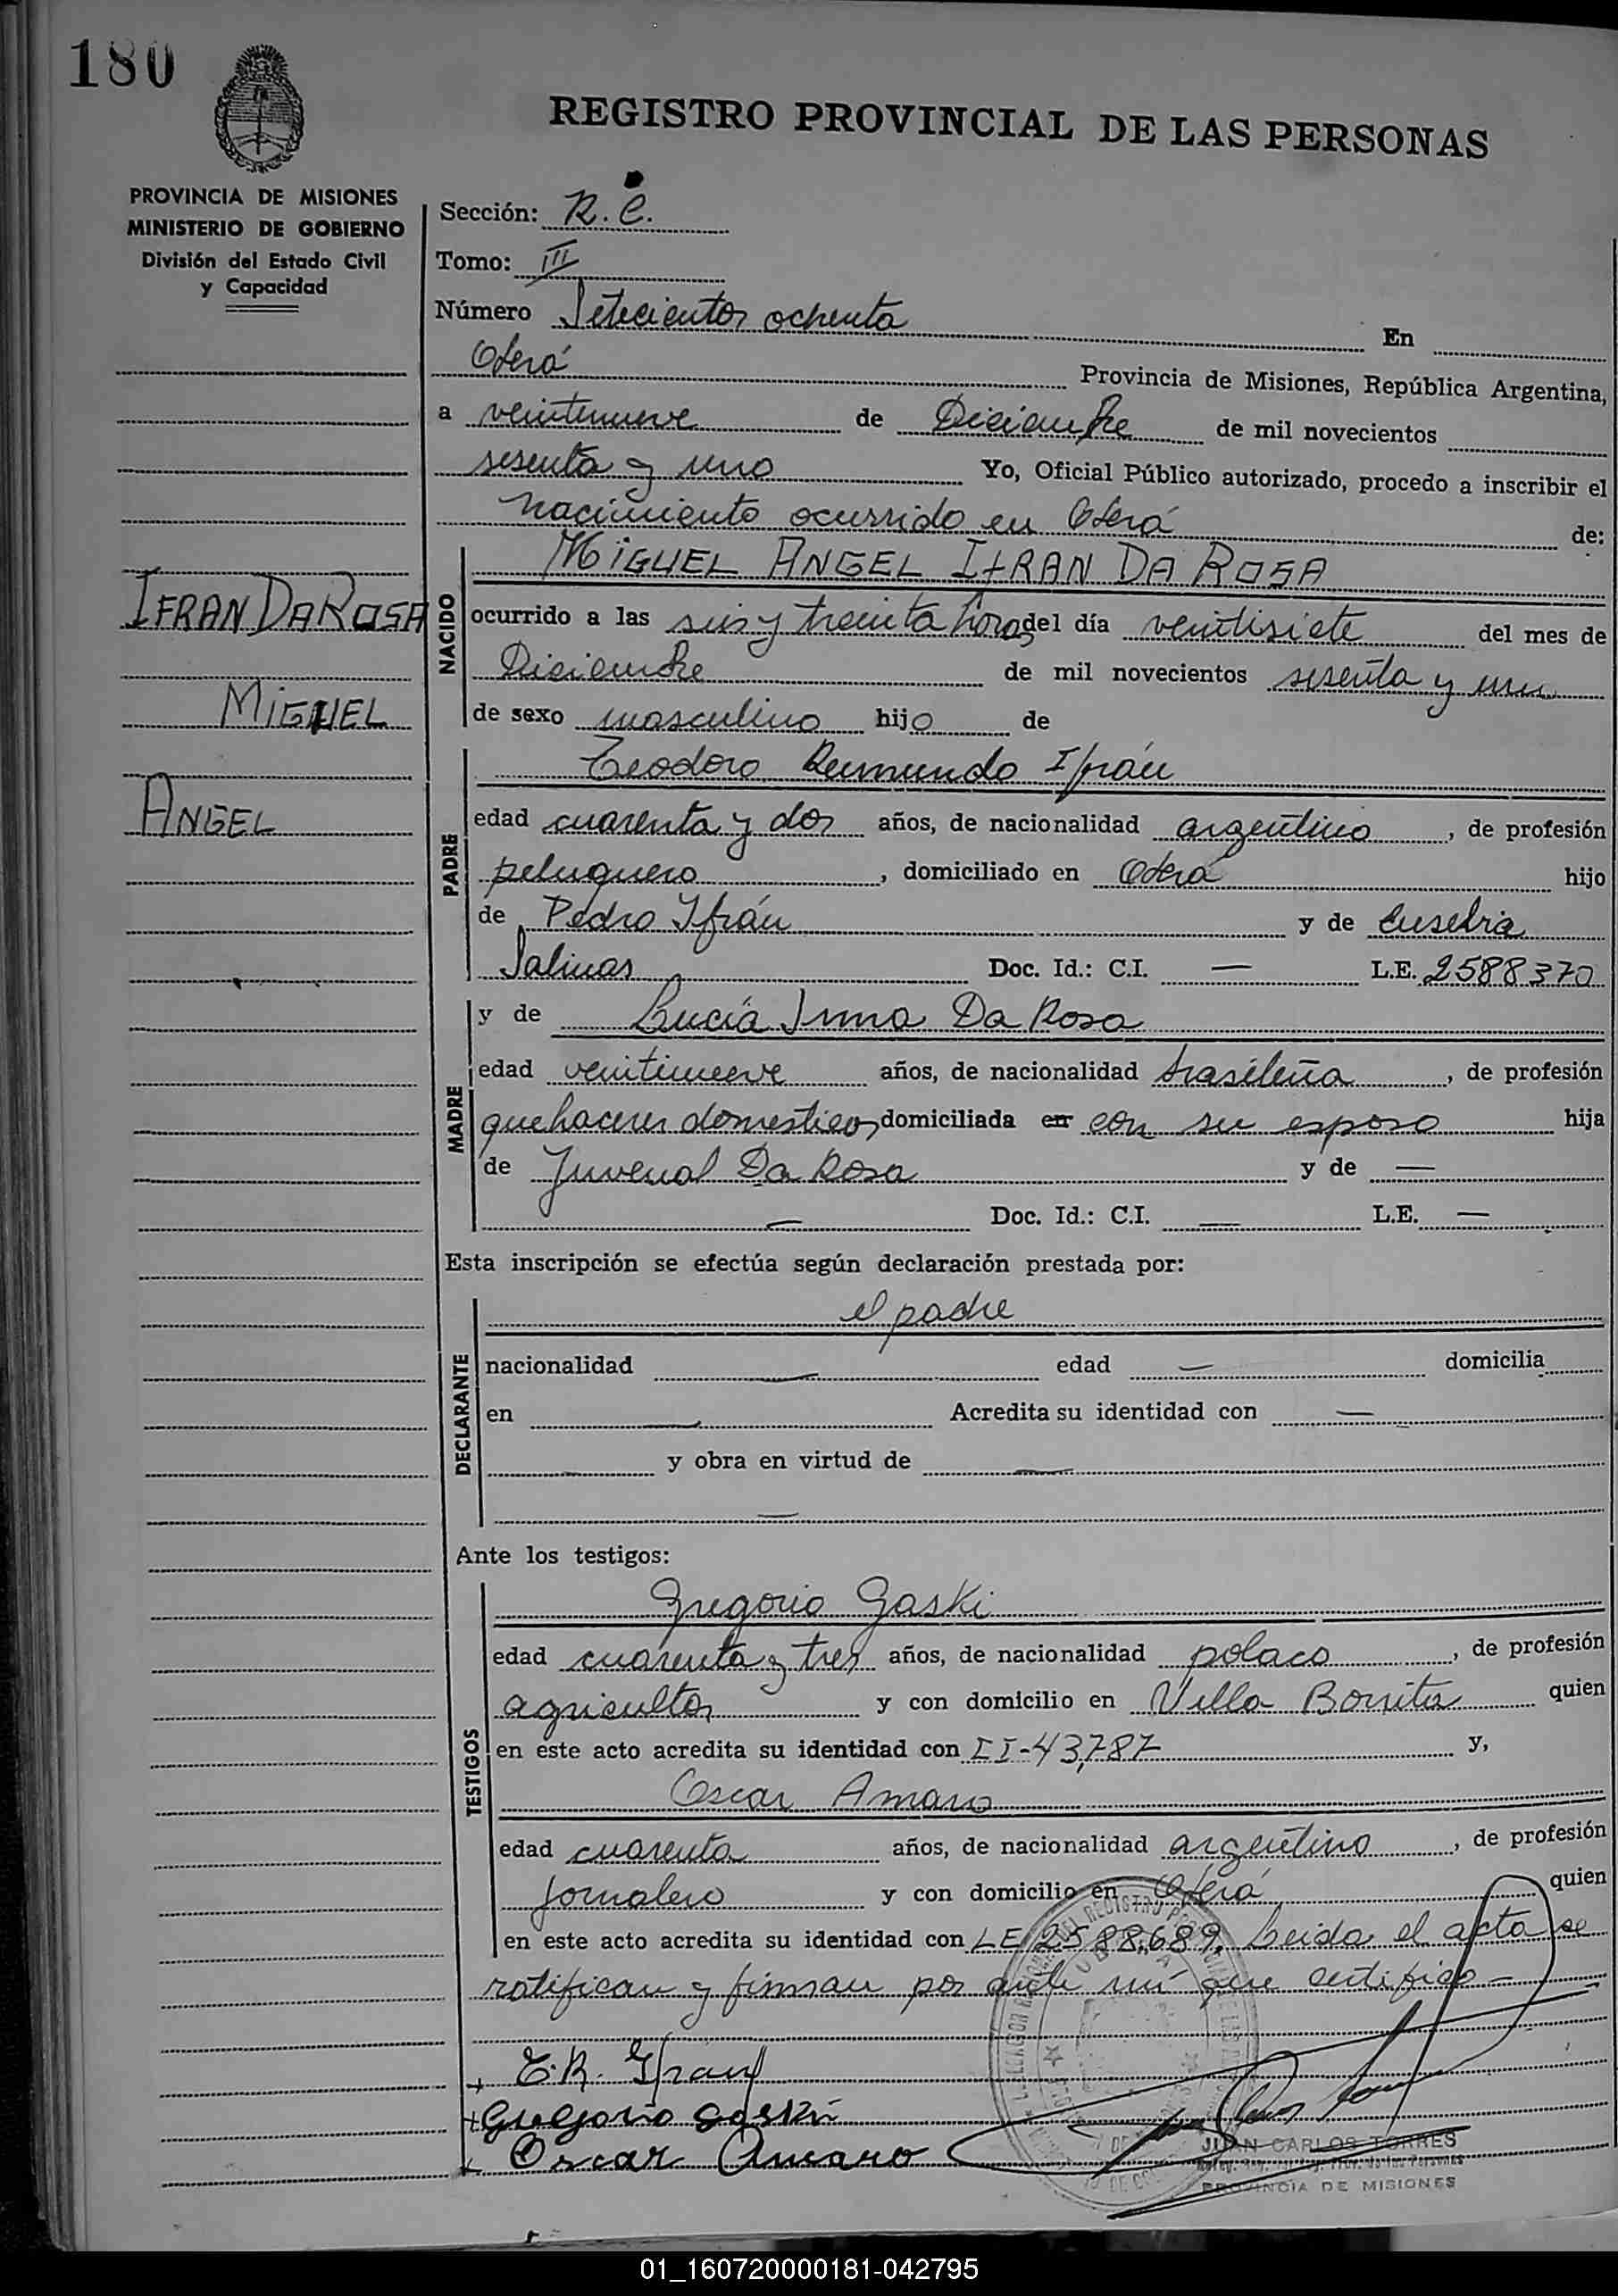 180
REGISTRO PROVINCIAL DE LAS PERSONAS
PROVINCIA DE MISIONES
MINISTERIO DE GOBIERNO
División del Estado Civil
y Capacidad
Sección: R. C.
Tomo: III
Número Setecientos ochenta En
Oberá Provincia de Misiones, República Argentina,
a veintinueve de Diciembre de mil novecientos
sesenta y uno Yo, Oficial Público autorizado, procedo a inscribir el
nacimiento ocurrido en Oberá de:
IFRAN DA ROSA
MIGUEL
ANGEL
NACIDO
MIGUEL ANGEL IFRAN DA ROSA
ocurrido a las seis y treinta horas del día veintisiete del mes de
Diciembre de mil novecientos sesenta y uno
de sexo masculino hijo de
PADRE
Teodoro Reimundo Ifrán
edad cuarenta y dos años, de nacionalidad argentino, de profesión
peluquero, domiciliado en Oberá hijo
de Pedro Ifrán y de Eusebia
Salinas Doc. Id.: C.I. — L.E. 2588370
MADRE
y de Lucía Irma Da Rosa
edad veintinueve años, de nacionalidad brasileña, de profesión
quehaceres domesticos domiciliada en con su esposo hija
de Juvenal Da Rosa y de —
— Doc. Id.: C.I. — L.E. —
Esta inscripción se efectúa según declaración prestada por:
DECLARANTE
el padre
nacionalidad — edad — domicilia
en — Acredita su identidad con —
— y obra en virtud de —
—
Ante los testigos:
TESTIGOS
Gregorio Gaski
edad cuarenta y tres años, de nacionalidad polaco, de profesión
agricultor y con domicilio en Villa Bonita quien
en este acto acredita su identidad con CI-43,787 y,
Oscar Amaro
edad cuarenta años, de nacionalidad argentino, de profesión
jornalero y con domicilio en Oberá quien
en este acto acredita su identidad con LE 2588,689. Leida el acta se
ratifican y firman por ante mí que certifico-
E. R. Ifran
Gregorio Gaski
Oscar Amaro
JUAN CARLOS TORRES
PROVINCIA DE MISIONES
01_160720000181-042795